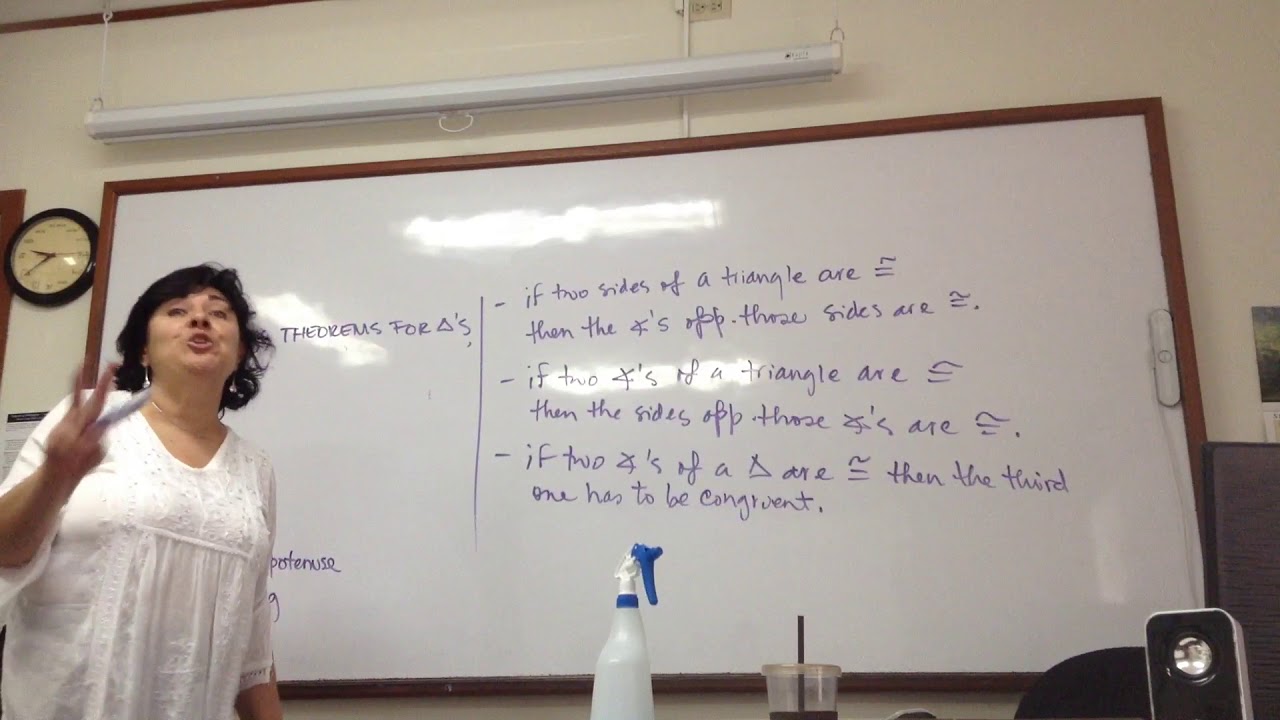 THEOREMS FOR Δ's,
- if two sides of a triangle are ≅
then the ∡'s opp. those sides are ≅.
- if two ∡'s of a triangle are ≅
then the sides opp. those ∡'s are ≅.
- if two ∡'s of a Δ are ≅ then the third
one has to be congruent.
potenuse
g